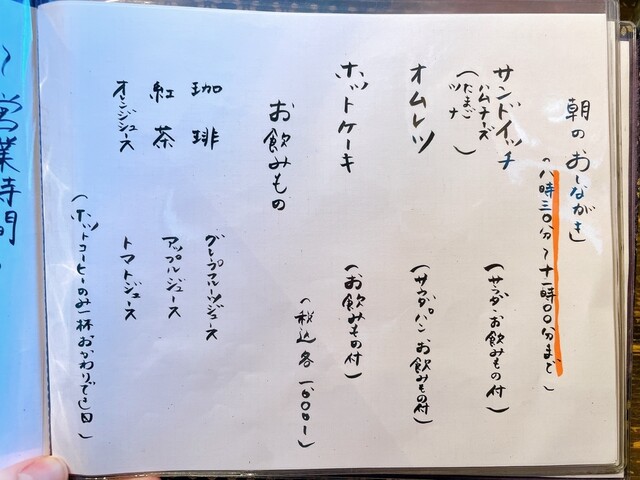 朝のおしながき
(八時三〇分~十一時〇〇分まで)
サンドイッチ
(ハムチーズ
たまご
ツナ)
(サラダ・お飲みもの付)
オムレツ
(サラダパンお飲みもの付)
ホットケーキ
(お飲みもの付)
お飲みもの
(税込各一〇〇〇ー)
珈琲
グレープフルーツジュース
紅茶
アップルジュース
オレンジジュース
トマトジュース
(ホットコーヒーのみ一杯おかわりできます)
~営業時間~